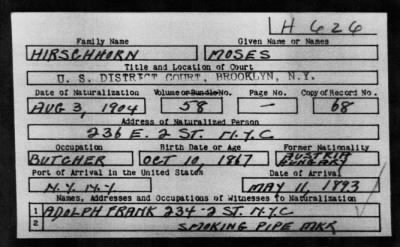 H 626
Family Name Given Name or Names
HIRSCHHORN MOSES
Title and Location of Court
U. S. DISTRICT COURT, BROOKLYN, N.Y.
Date of Naturalization Volume or Bundle No. Page No. Copy of Record No.
AUG 3, 1904 58 — 68
Address of Naturalized Person
236 E. 2 ST. N.Y.C
Occupation Birth Date or Age Former Nationality
BUTCHER OCT 10, 1867 AUSTRIA
Port of Arrival in the United States Date of Arrival
N.Y. N.Y MAY 11, 1893
Names, Addresses and Occupations of Witnesses to Naturalization
1 ADOLPH FRANK 234-2 ST. N.Y.C
2 SMOKING PIPE MKR